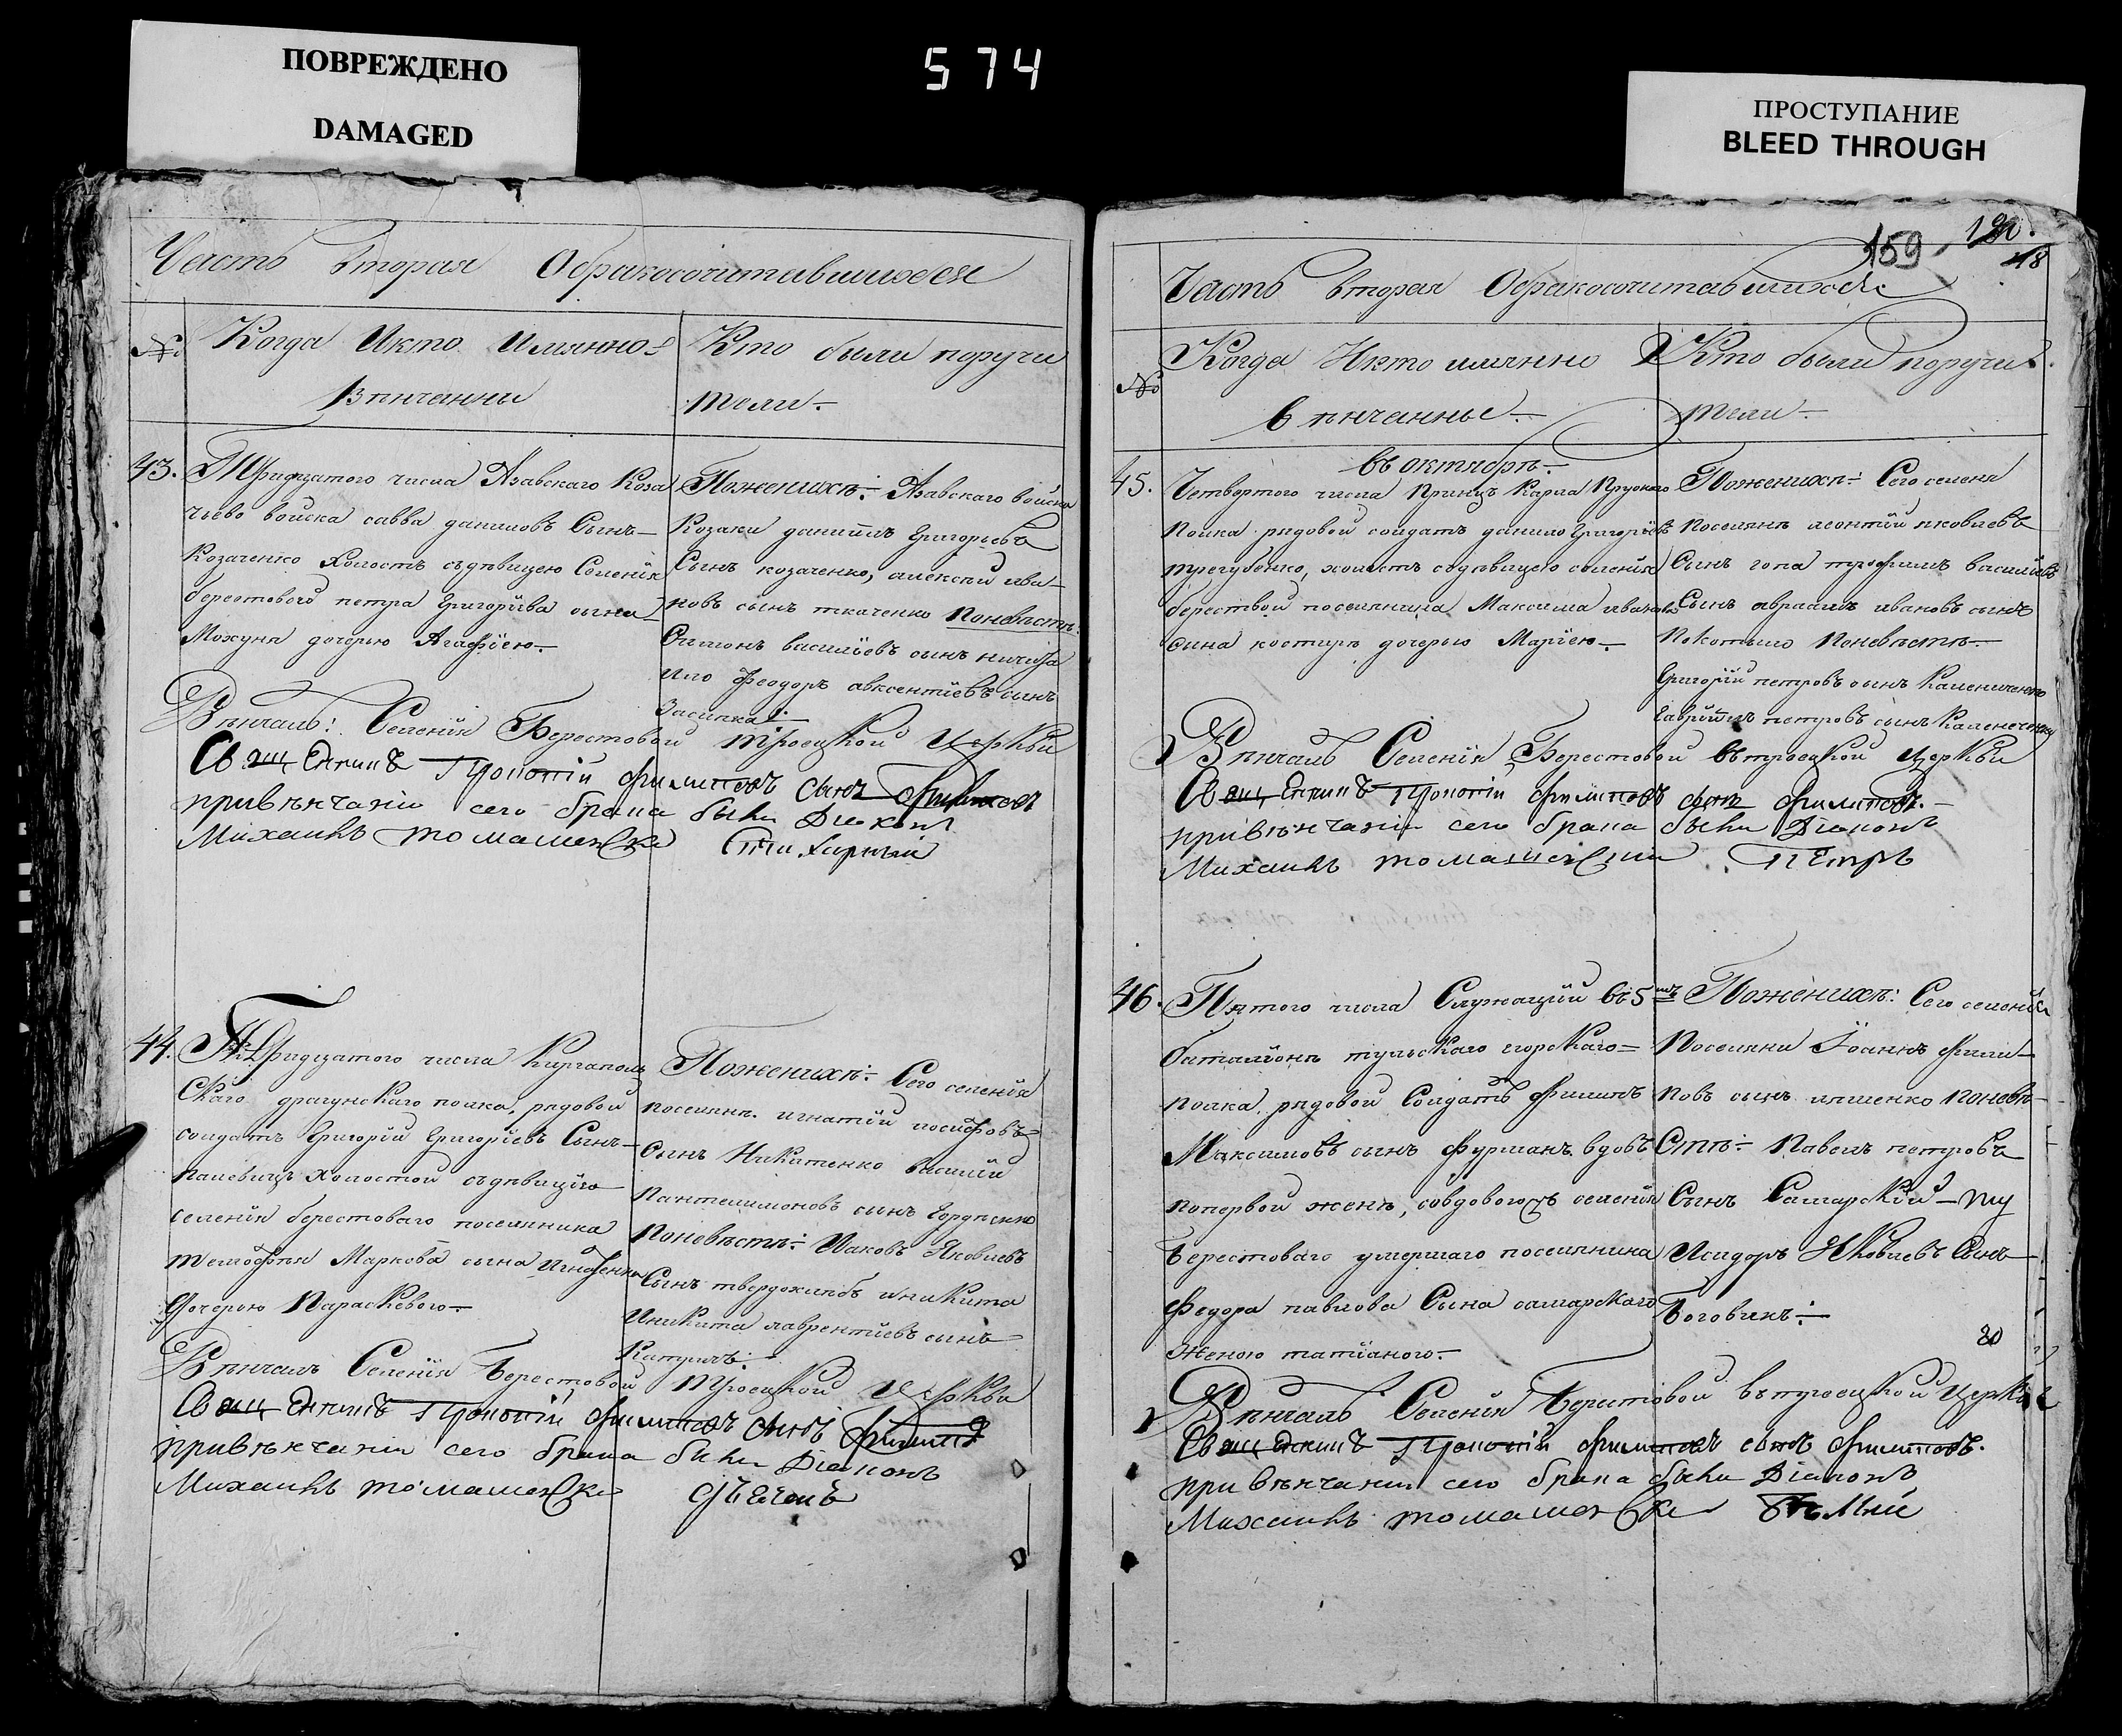 ПОВРЕЖДЕНО
DAMAGED
574
ПРОСТУПАНИЕ
BLEED THROUGH
Часть вторая Обракосочитавшихся
№
Когда Икто Имянно
Вѣнчанны
Кто были поручи
тели.
43. Тридцатого числа Азавскаго Коза
чьево войска савва даниловъ Сынъ
Козаченко Холостъ съдѣвицею Селенія
берестового петра Григорїева сына
Мохуня дочерью Агафїею.
Поженихѣ: Азавскаго войска
Козаки даниилъ Григорьевъ
Сынъ козаченко, алексѣй ива-
новъ сынъ ткаченко Поневѣстѣ:
Симонъ васильевъ сынъ
Феодоръ авксентіевъ сынъ
Засипка
Вѣнчалъ: Селенїя Берестовой Троецкой Церкви
Священникъ Прокопій филиповъ сынъ филиповъ
привѣнчаніи сего брака были Діаконъ
Михаилъ томашевски
44. Тридцатого числа Каргаполь
Скаго драгунскаго полка, рядовой
солдатъ Григорїй Григорїевъ Сынъ
Палевичъ Холостой съдѣвицїю
селенія берестоваго поселянника
тимофѣя Маркова сына Игнатенка
Дочерью Параскевою
Поженихѣ: Сего селенія
поселянѣ. игнатїй иосифовъ
Сынъ Никитенко василїй
Пантелимоновъ сынъ Гордѣенко
Поневѣстѣ: Иаковъ Яковлевъ
Сынъ твердохлибъ иникита
Иникита лаврентїевъ сынъ
Вѣнчалъ Селенїя Берестовой Троецкой Церкви
Священникъ Прокопій филиповъ сынъ филиповъ
привѣнчаніи сего брака были Діаконъ
Михаилъ томашевски
159
18
Часть вторая Обракосочитавшихся
№
Когда Икто имянно
вѣнчанные
Кто были поручи
тели
въ октябрѣ
45. Четвертого числа Принцъ Карла Прускаго
Полка рядовой солдатъ данило Григорїевъ
трегубенко, холостъ съдѣвицею селенїя
берествой поселянина Максима иванова
сына костиря дочерью Марїею
Поженихѣ: Сего селенія
Поселянѣ леонтїй яковлевъ
Сынъ гопа трофимъ васильевъ
Сынъ авраамъ ивановъ сынъ
Покотило Поневѣстѣ
Григорїй петровъ сынъ Калениченко
гаврїилъ петровъ сынъ Каленеченко
Вѣнчалъ Селенїя Берестовой Въ троецкой Церкви
Священникъ Прокопій филиповъ сынъ филиповъ.
привѣнчаніи сего брака были Діаконъ
Михаилъ томашевский Петръ
46. Пятого числа Служащїй въ 5мъ
баталїонѣ тульскаго егорскаго
полка рядовой Солдатъ Филипъ
Максимовъ сынъ Фурманъ вдовъ
поперьвой женѣ, совдовою селенїя
Берестоваго умершаго поселянина
Федора павлова Сына самарскаго
Женою татїаною.
Поженихѣ: Сего селенїя
Поселяни Їоаннъ фили
повъ сынъ ляшенко поневѣ
Стѣ: Павелъ петровъ
Сынъ Самарскїй
Исидоръ Яковлевъ Сынъ
Боговинъ:
20
Вѣнчалъ Селенїя Берестовой Въ троецкой Церкви
Священникъ Прокопій филиповъ сынъ филиповъ.
привѣнчаніи сего брака были Діаконъ
Михаилъ томашевски